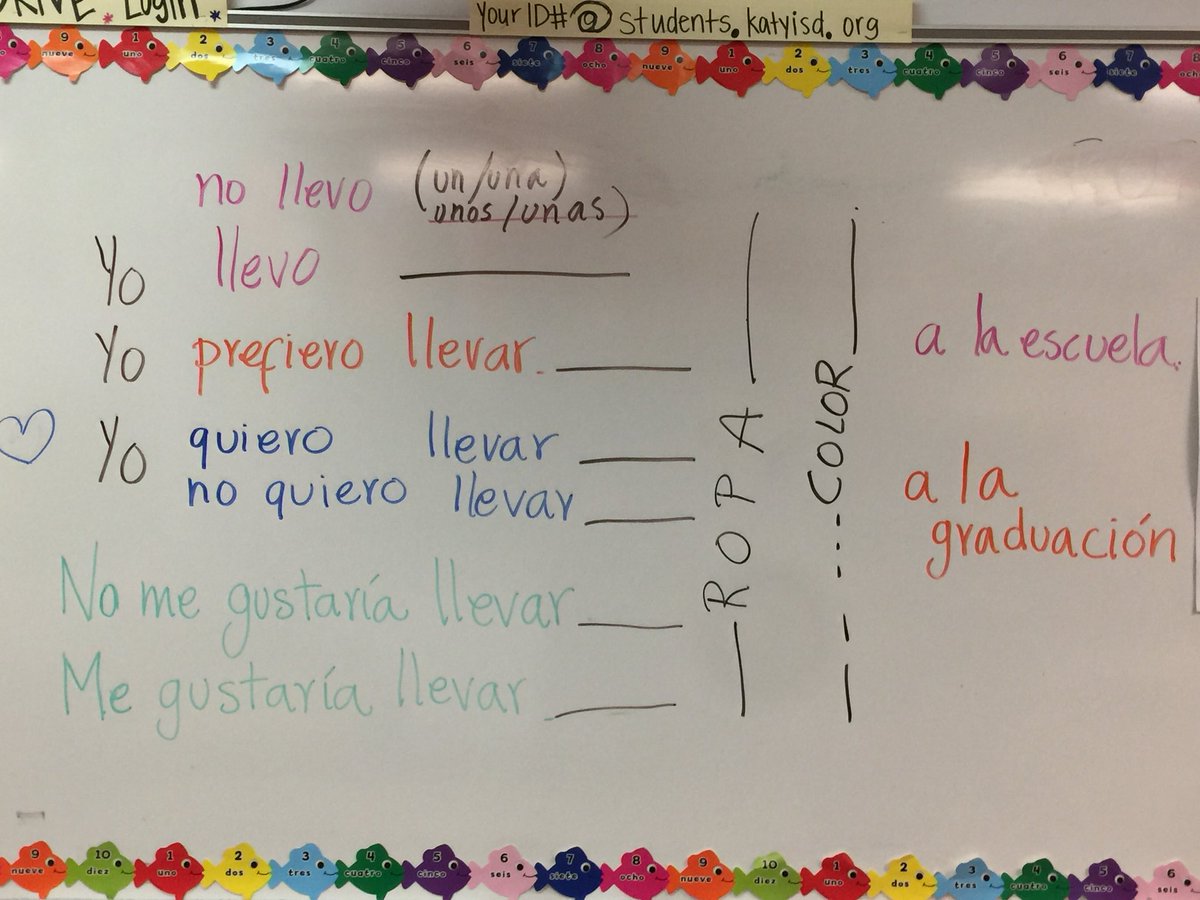 DRIVE * Login *
Your ID# @ students.katyisd.org
9 nueve 1 uno 2 dos 3 tres 4 cuatro 5 cinco 6 seis 7 siete 8 ocho 9 nueve 1 uno 2 dos 3 tres 4 cuatro 5 cinco 6 seis 7 siete 8
no llevo (un/una)
unos/unas)
Yo llevo
Yo prefiero llevar
Yo quiero llevar
no quiero llevar
No me gustaría llevar
Me gustaría llevar
ROPA
COLOR
a la escuela.
a la
graduación
9 nueve 10 diez 1 uno 2 dos 3 tres 4 cuatro 5 cinco 6 seis 7 siete 8 ocho 9 nueve 10 diez 1 uno 2 dos 3 tres 4 cuatro 5 cinco 6 seis